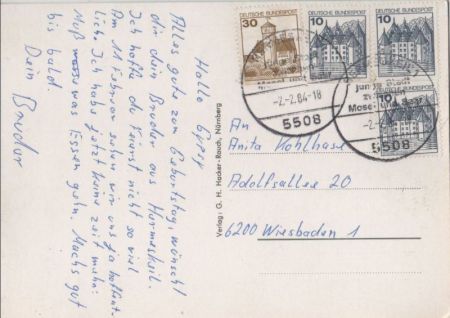 Hallo
Alles gute zum Geburtstag, wünscht
dir dein Bruder aus Hermeskeil.
Ich hoffe du feierst nicht so viel
Am 11 Februar sehen wir uns ja hoffent.
lich. Ich habs jetzt keine Zeit mehr:
Muß was Essen gehn. Machs gut
bis bald.
Dein
Bruder
Verlag: G. H. Hacker-Rauch, Nürnberg
DEUTSCHE BUNDESPOST
30
DEUTSCHE BUNDESPOST
10
DEUTSCHE BUNDESPOST
10
10
-2.-2.84-18
5508
Mosel
5508
An
Anita Kohlhaas
Adolfsallee 20
6200 Wiesbaden 1